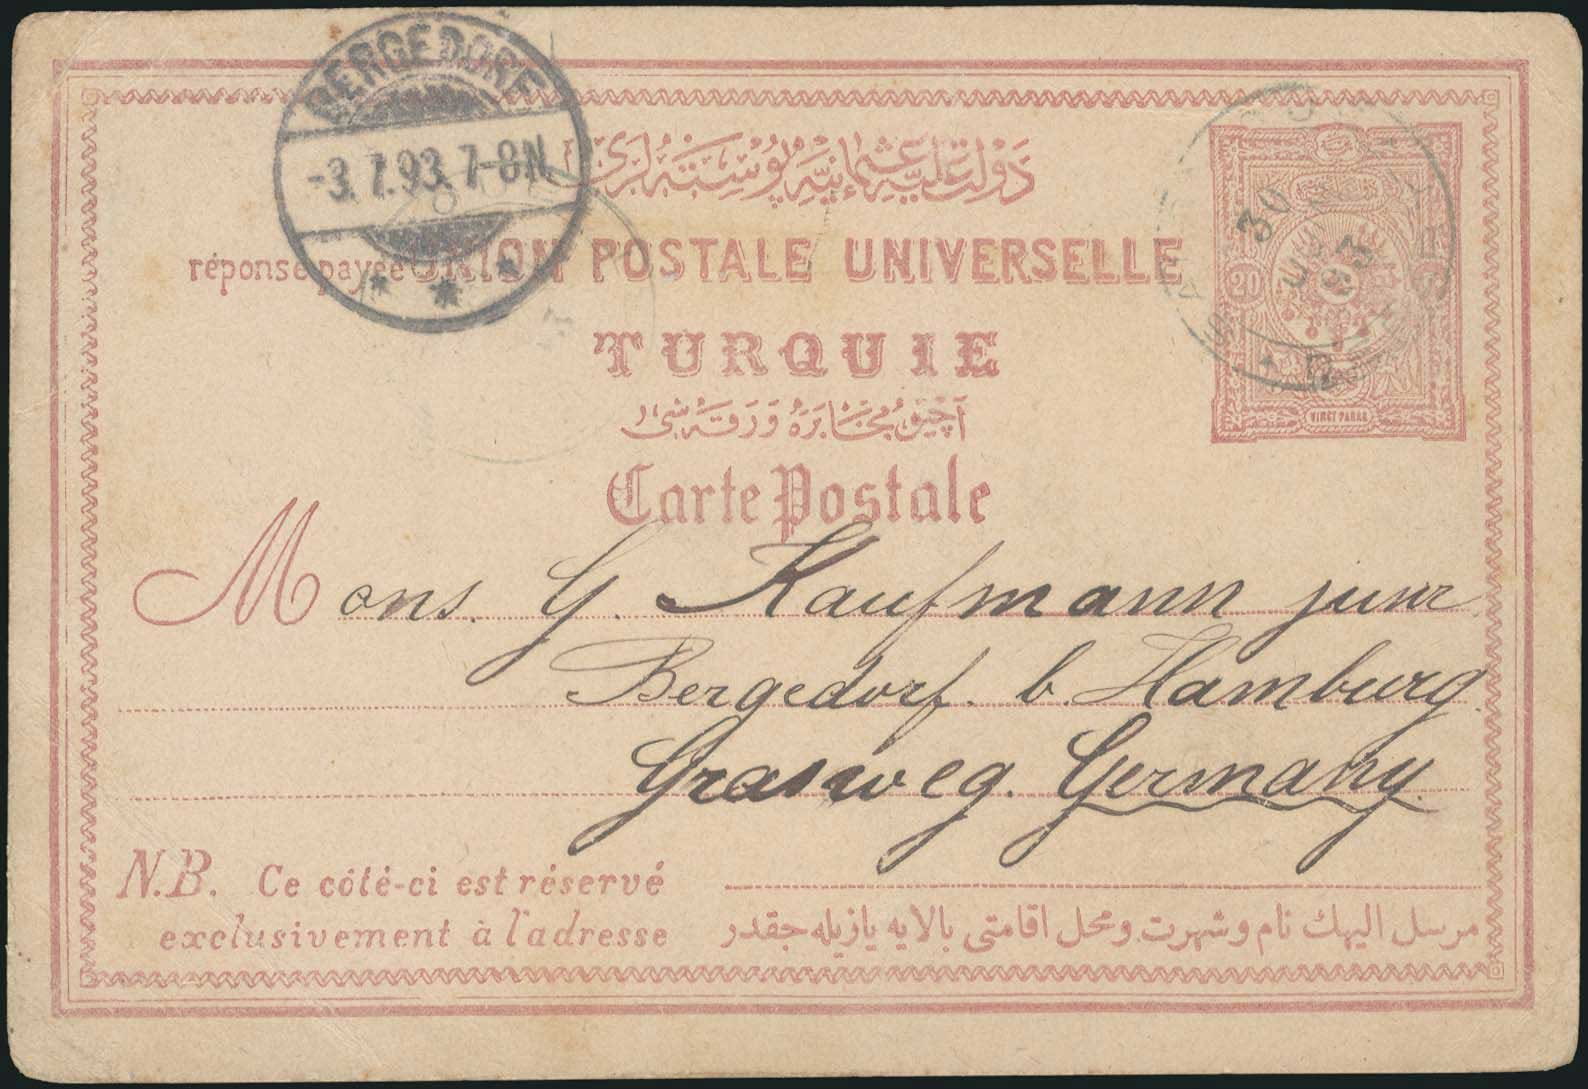 BERGEDORF
-3.7.93. 7-8N.
دولت عليه عثمانيه پوسته لرى
réponse payée UNION POSTALE UNIVERSELLE
30
JUN
93
20
TURQUIE
VINGT PARAS
آچيق مخابره ورقه سى
Carte Postale
Mons. G. Kaufmann junr
Bergedorf. b. Hamburg.
Grasweg. Germany.
N.B. Ce côté-ci est réservé
exclusivement à l'adresse
مرسل اليهك نام و شهرت و محل اقامتى بالايه يازيله جقدر